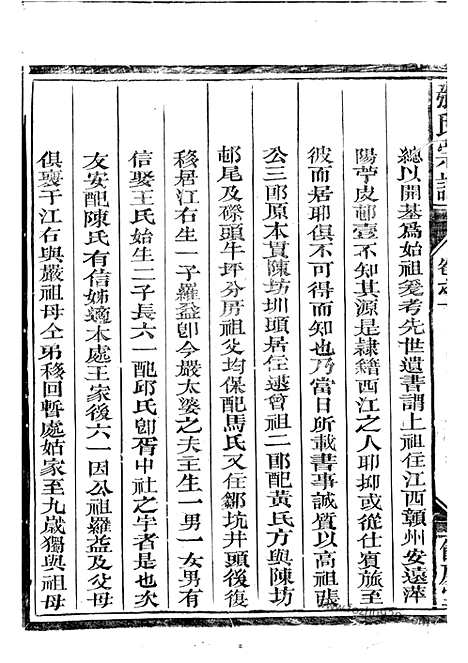 張氏宗譜
卷之一
總以開基爲始祖爰考先世遺書謂上祖住江西贛州安遠萍
陽苧皮邨壹不知其源是隷籍西江之人耶抑或從仕賓旅至
彼而居耶俱不可得而知也乃當日所載書事誠質以高祖張
公三郎原本貫陳坊圳頭居住逮曾祖二郎配黃氏方與陳坊
邨尾及磜頭牛坪分房祖父均保配馬氏又住鄒坑井頭後復
移居江右生一子羅益卽今嚴太婆之夫主生一男一女男有
信娶王氏始生二子長六一配邱氏卽胥中社之宇者是也次
友安配陳氏有信姊適本處王家後六一因公祖羅益及父母
俱喪于江右與嚴祖母仝弟移回暫處姑家至九歲獨與祖母